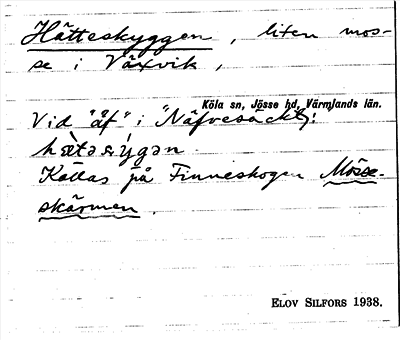 Hätteskyggen, liten mos-
se i Växvik,
Köla sn, Jösse hd, Värmlands län.
Vid "åt", i "Näfvesäckt"!
hæ̀təsỳgən
Kallas på Finneskogen Mösse-
skärmen.
ELOV SILFORS 1938.